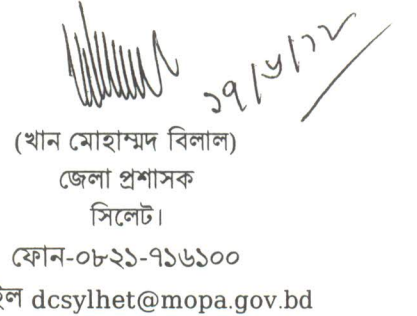 (খান মোহাম্মদ বিলাল)
জেলা প্রশাসক
সিলেট।
ফোন-০৮২১-৭১৬১০০
ইল dcsylhet@mopa.gov.bd